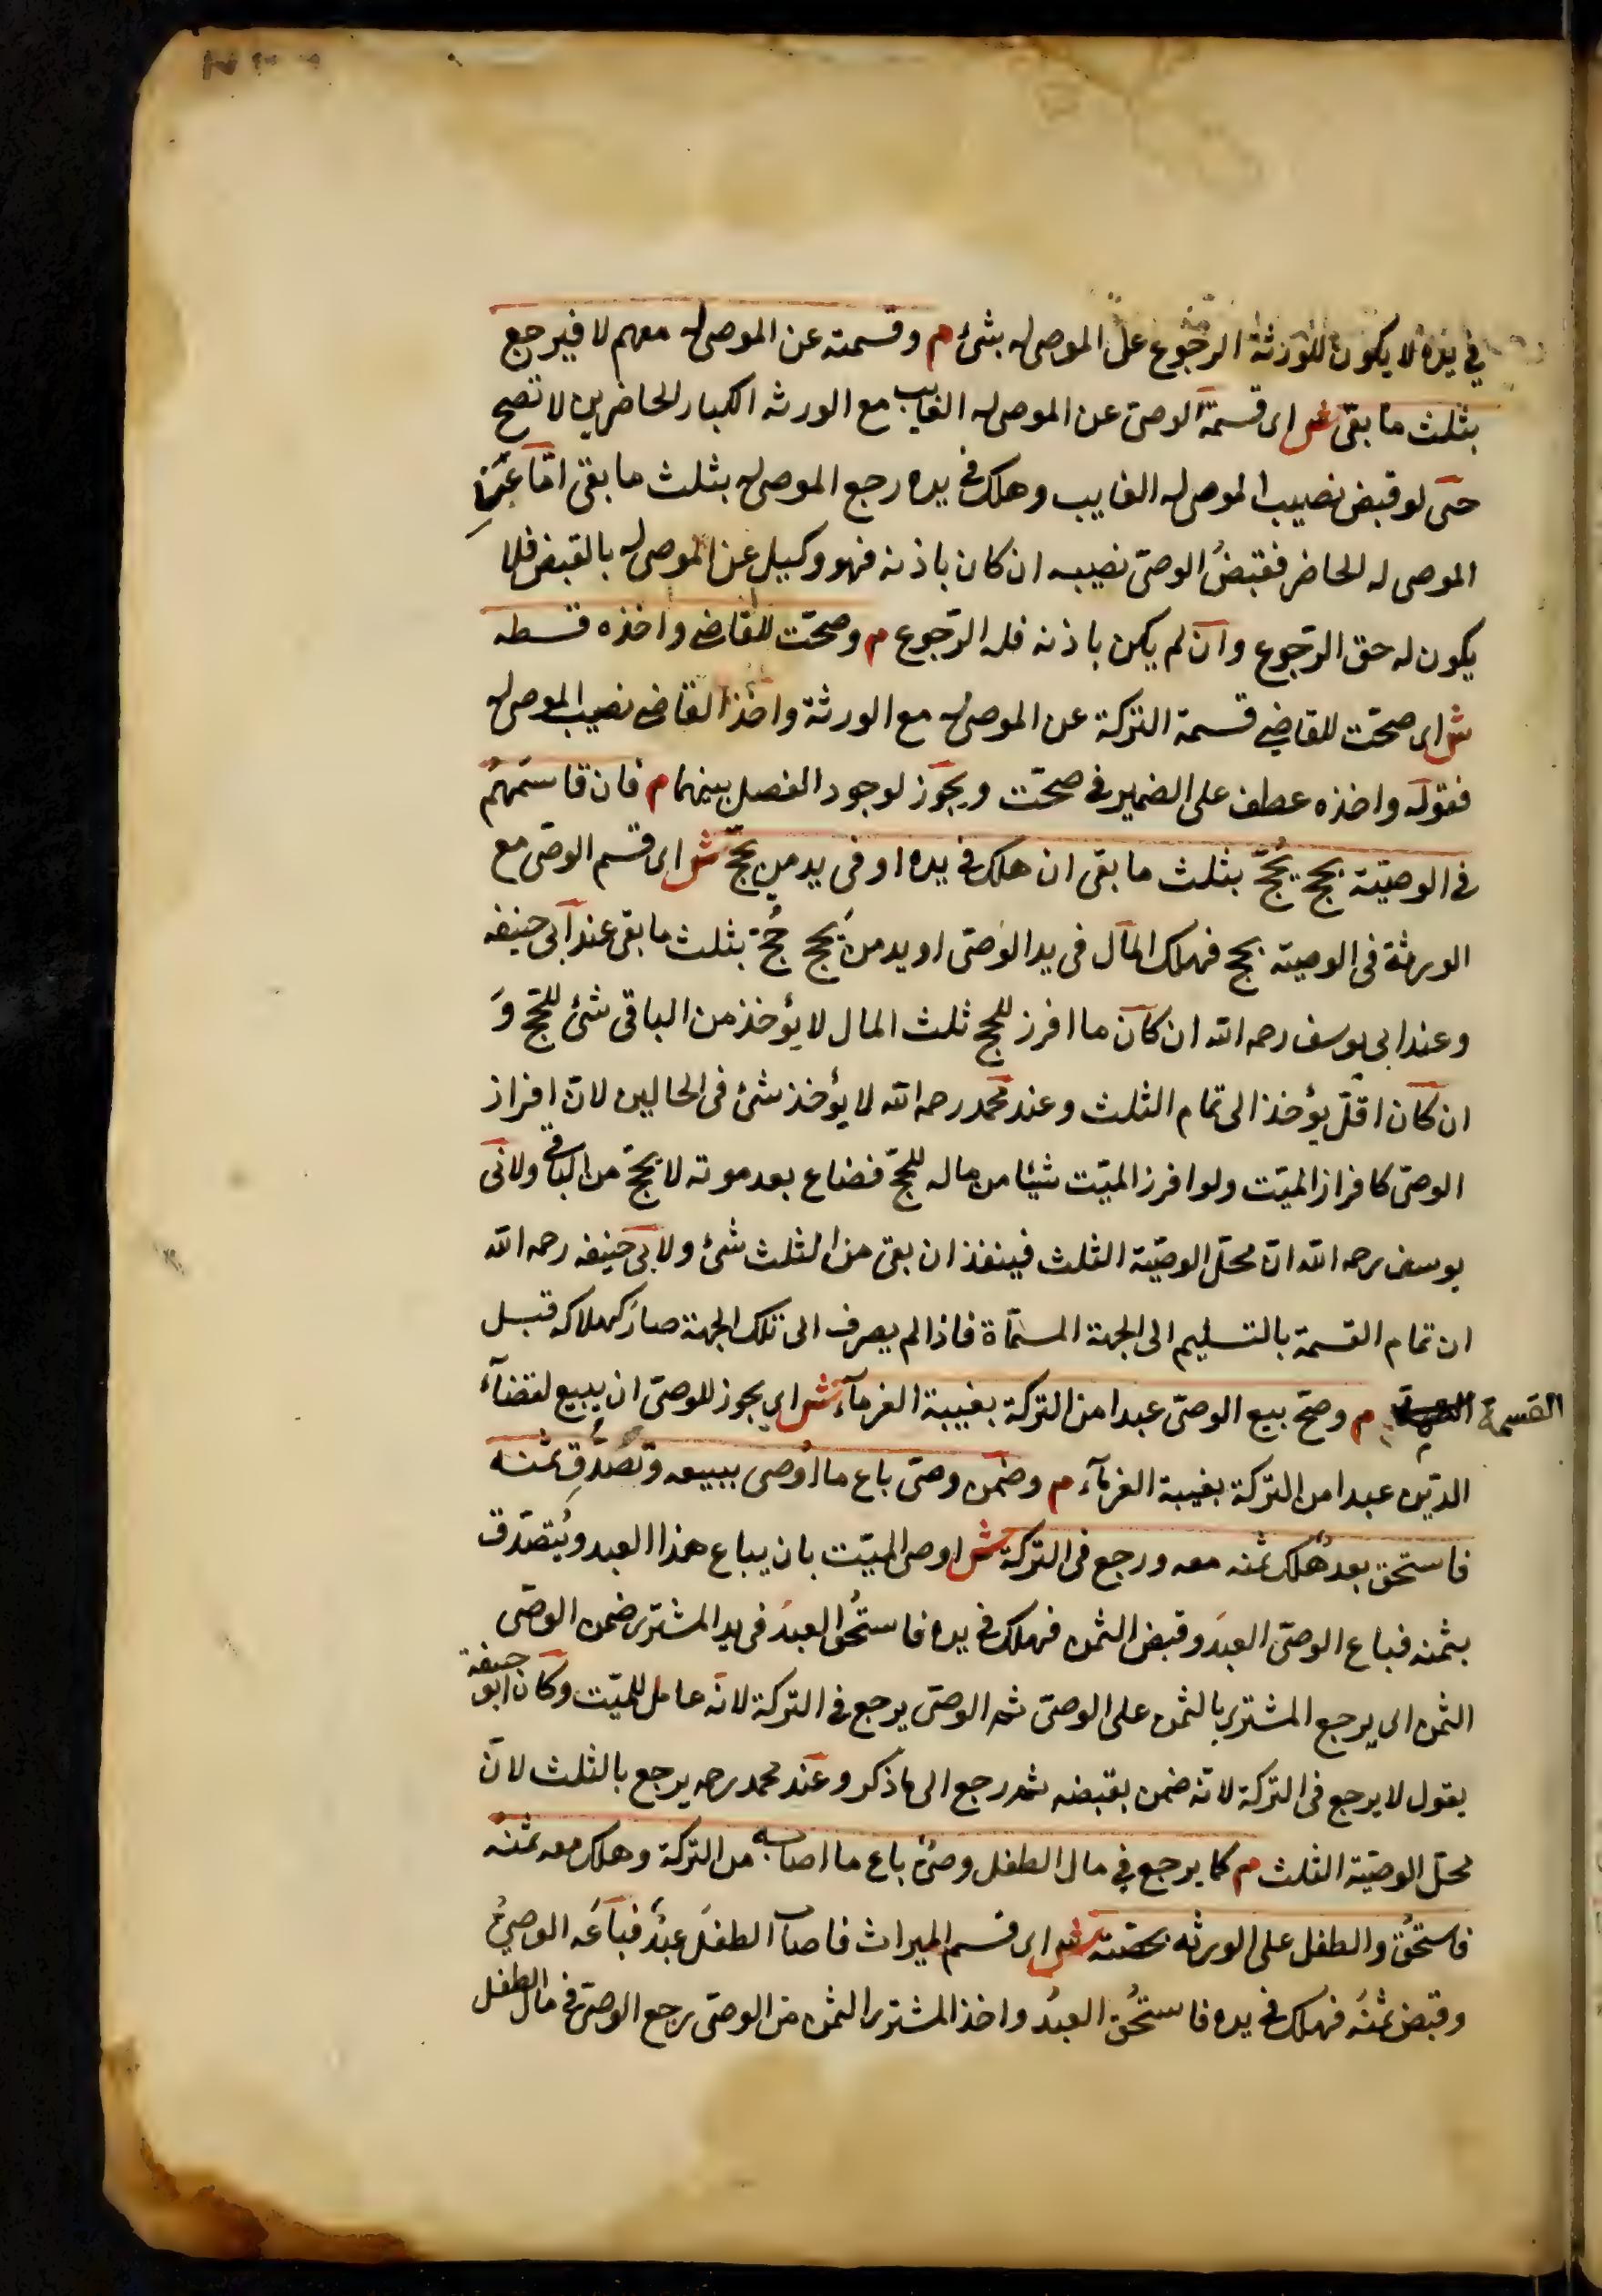 في يده لا يكون للورثة الرجوع على الموصى له بشئ م وقسمته عن الموصى له معهم لا فيرجع
بثلث ما بقى ش اى قسمة الوصىّ عن الموصى له الغايب مع الورثه الكبار الحاضرين لا تصح
حتى لو قبض نصيب الموصى له الغايب وهلك فى يده رجع الموصى له بثلث ما بقى امّا عن
الموصى له الحاضر فقبضُ الوصىّ نصيبه ان كان باذنه فهو وكيل عن الموصى له بالقبض فلا
يكون له حق الرّجوع وان لم يكن باذنه فله الرّجوع م وصحّت للقاضى واخذه قسطه
ش اى صحّت للقاضى قسمة التركة عن الموصى له مع الورثة واخذ القاضى نصيب الموصى له
فقوله واخذه عطف على الضمير فى صحّت ويجوز لوجود الفصل بينهما م فان قاسمهم
فى الوصيّة بحج يُحجّ بثلث ما بقى ان هلك فى يده او فى يد من يحجّ ش اى قسم الوصّى مع
الورثة فى الوصية بحج فهلك المال فى يد الوصّى او يد من يحج حُجّ بثلث ما بقى عند ابى حنيفه
وعند ابى يوسف رحمه الله ان كان ما افرز للحج ثلث المال لا يؤخذ من الباقى شئ للحّج وَ
ان كان اقلّ يؤخذ الى تمام الثلث وعند محمد رحمه الله لا يؤخذ شئ فى الحالين لانّ افراز
الوصىّ كافراز الميّت ولو افرز الميّت شيئا من ماله للحجّ فضاع بعد موته لا يحجّ من الباقى ولابى
يوسف رحمه الله انّ محلّ الوصيّة الثلث فينفذ ان بقى من الثلث شئ ولابى حنيفه رحمه الله
ان تمام القسمة بالتسليم الى الجهة المسمّاة فاذا لم يصرف الى تلك الجهة صار كهلاكه قبل
القسمة م وصحّ بيع الوصىّ عبدا من التركة بغيبة الغرمآء ش اى يجوز للوصىّ ان يبيع لقضآء
الدّين عبدا من التركة بغيبة الغرمآء م وضمن وصىّ باع ما اوصى ببيعه وتصدّق ثمنه
فاستحق بعد هلك ثمنه معه ورجع فى التركة ش اوصى الميّت بان يباع هذا العبد ويُتصدّق
بثمنه فباع الوصىّ العبدَ وقبض الثمن فهلك فى يده فاستُحق العبدُ فى يد المشترى ضمن الوصّى
الثمن اى يرجع المشترى بالثمن على الوصىّ ثم الوصىّ يرجع فى التركة لانّه عامل للميّت وكان ابو حنيفة
يقول لا يرجع فى التركة لانّه ضمن بقبضه ثم رجع الى ما ذكر وعند محمد رحمه يرجع بالثلث لانّ
محلّ الوصيّة الثلث م كما يرجع فى مال الطفل وصىٌّ باع ما اصابه من التركة وهلك معه ثمنه
فاستحقّ والطفل على الورثه بحصّته ش اى قسم الميراث فاصاب الطفلَ عبدٌ فباعه الوصىُّ
وقبض ثمنَه فهلك فى يده فاستُحقّ العبدُ واخذ المشترى الثمن من الوصىّ يرجع الوصىّ فى مال الطفل